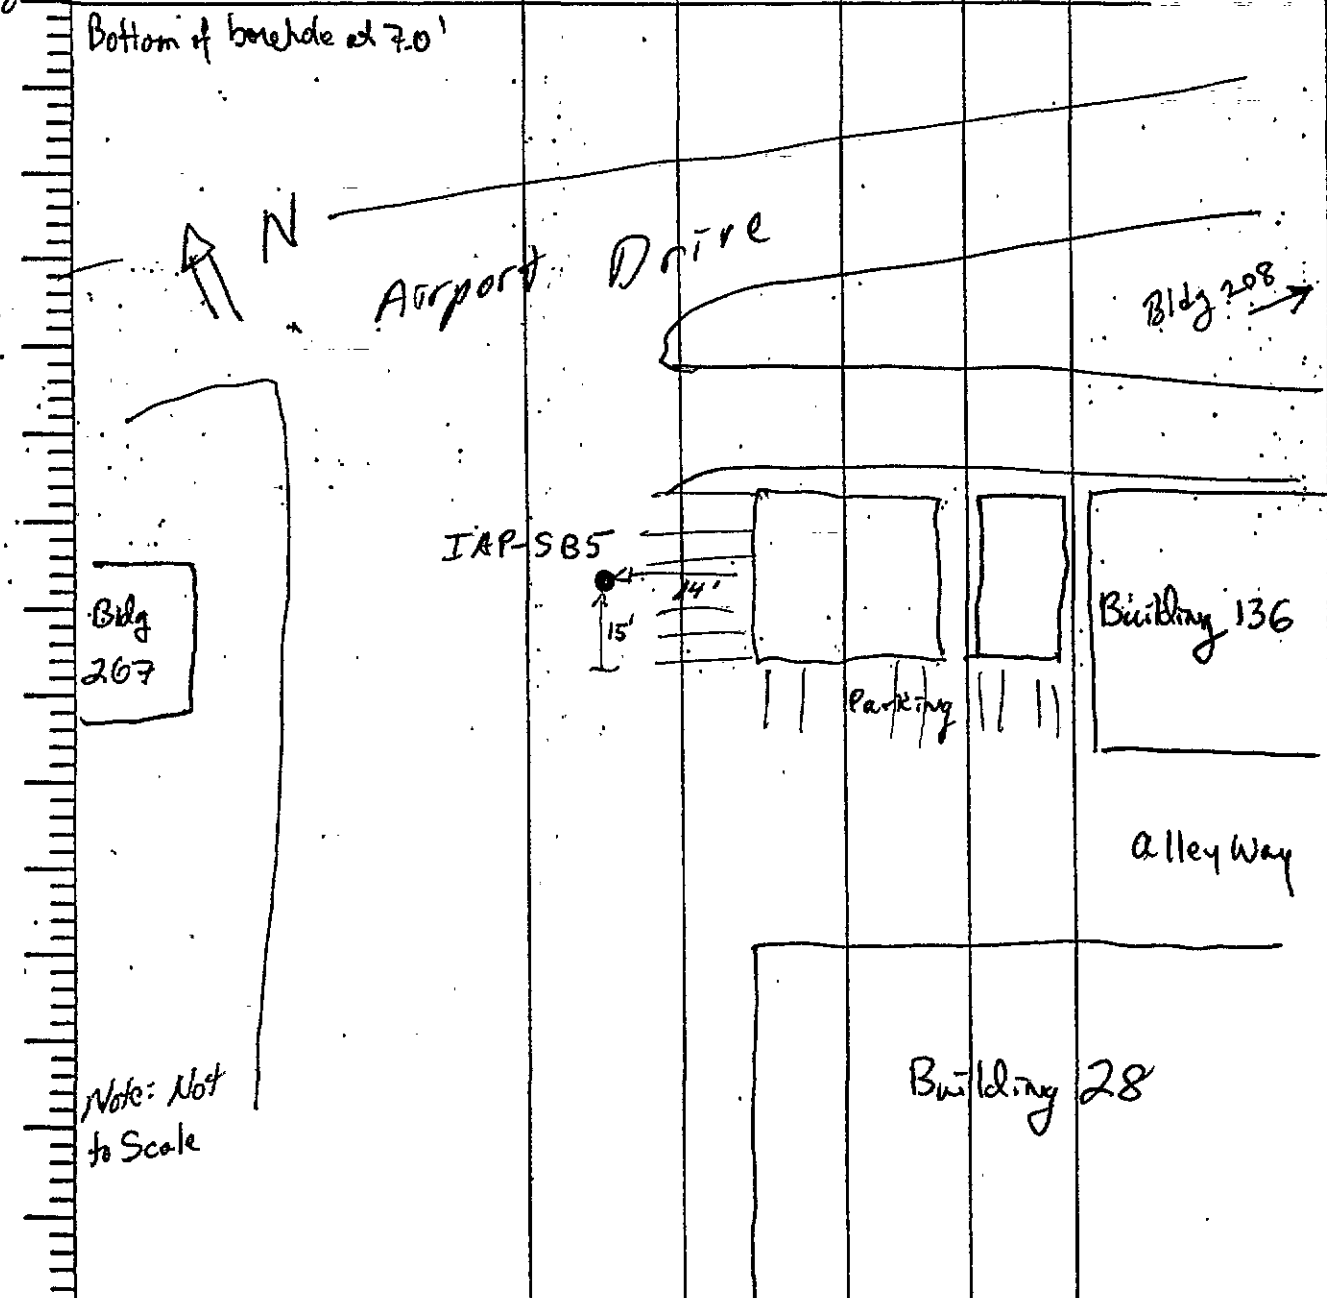 Bottom of borehole at 7.0'
N
Airport Drive
Bldg 208
IAP-SB5
24'
15'
Bldg
267
Building 136
Parking
Alley Way
Building 28
Note: Not
to Scale